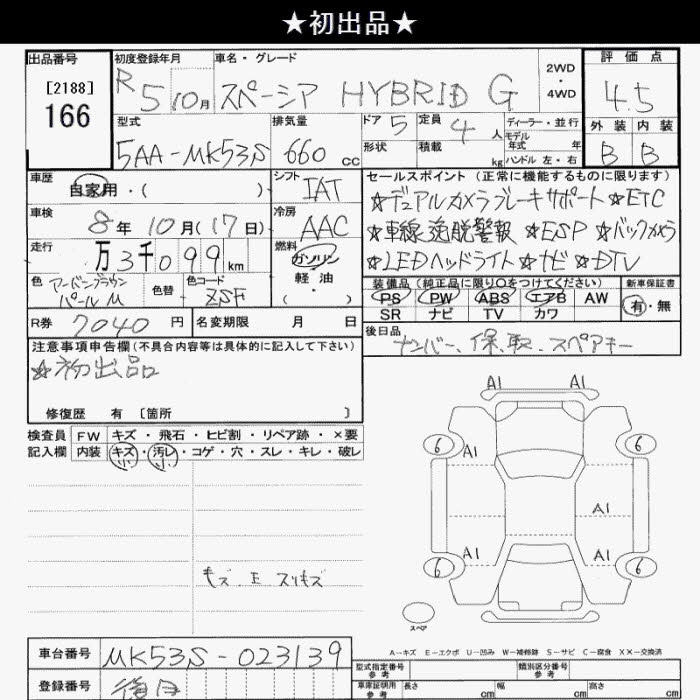 ★初出品★
出品番号 初度登録年月 車名・グレード 2WD・4WD 評価点
[2188] 166 R5 10月 スペーシア HYBRID G 4.5
型式 排気量 ドア 5 定員 4人 ディーラー・並行 外装 内装
5AA-MK53S 660cc 形状 積載 kg モデル年式 年 ハンドル 左・右 B B
車歴 自家用・( ) シフト IAT セールスポイント(正常に機能するものに限ります)
車検 8年10月(17日) 冷房 AAC ☆デュアルカメラブレーキサポート ☆ETC
☆車線逸脱警報 ☆ESP ☆バックカメラ
走行 万3千099km 燃料 ガソリン 軽・油 ・( ) ☆LEDヘッドライト ☆ナビ ☆DTV
色 アーバンブラウンパールM 色替 色コード ZSF 装備品(純正品に限り○をつけてください) 新車保証書
PS PW ABS エアB AW 有・無
SR ナビ TV カワ
R券 7040円 名変期限 月 日 後日品
ナンバー、保、取、スペアキー
注意事項申告欄(不具合内容等は具体的に記入して下さい)
☆初出品
修復歴 有 [箇所 ]
検査員 FW キズ・飛石・ヒビ割・リペア跡・×要
記入欄 内装 キズ・汚レ・コゲ・穴・スレ・キレ・破レ
A1 A1
6 A1 6
A1
6 A1 A1 6
キズ E スリキズ
スペア
A-キズ E-エクボ U-凹み W-補修跡 S-サビ C-腐食 XX-交換済
車台番号 MK53S-023139 型式指定番号 類別区分番号
登録番号 車庫証明用参考 長さ cm 幅 cm 高さ cm